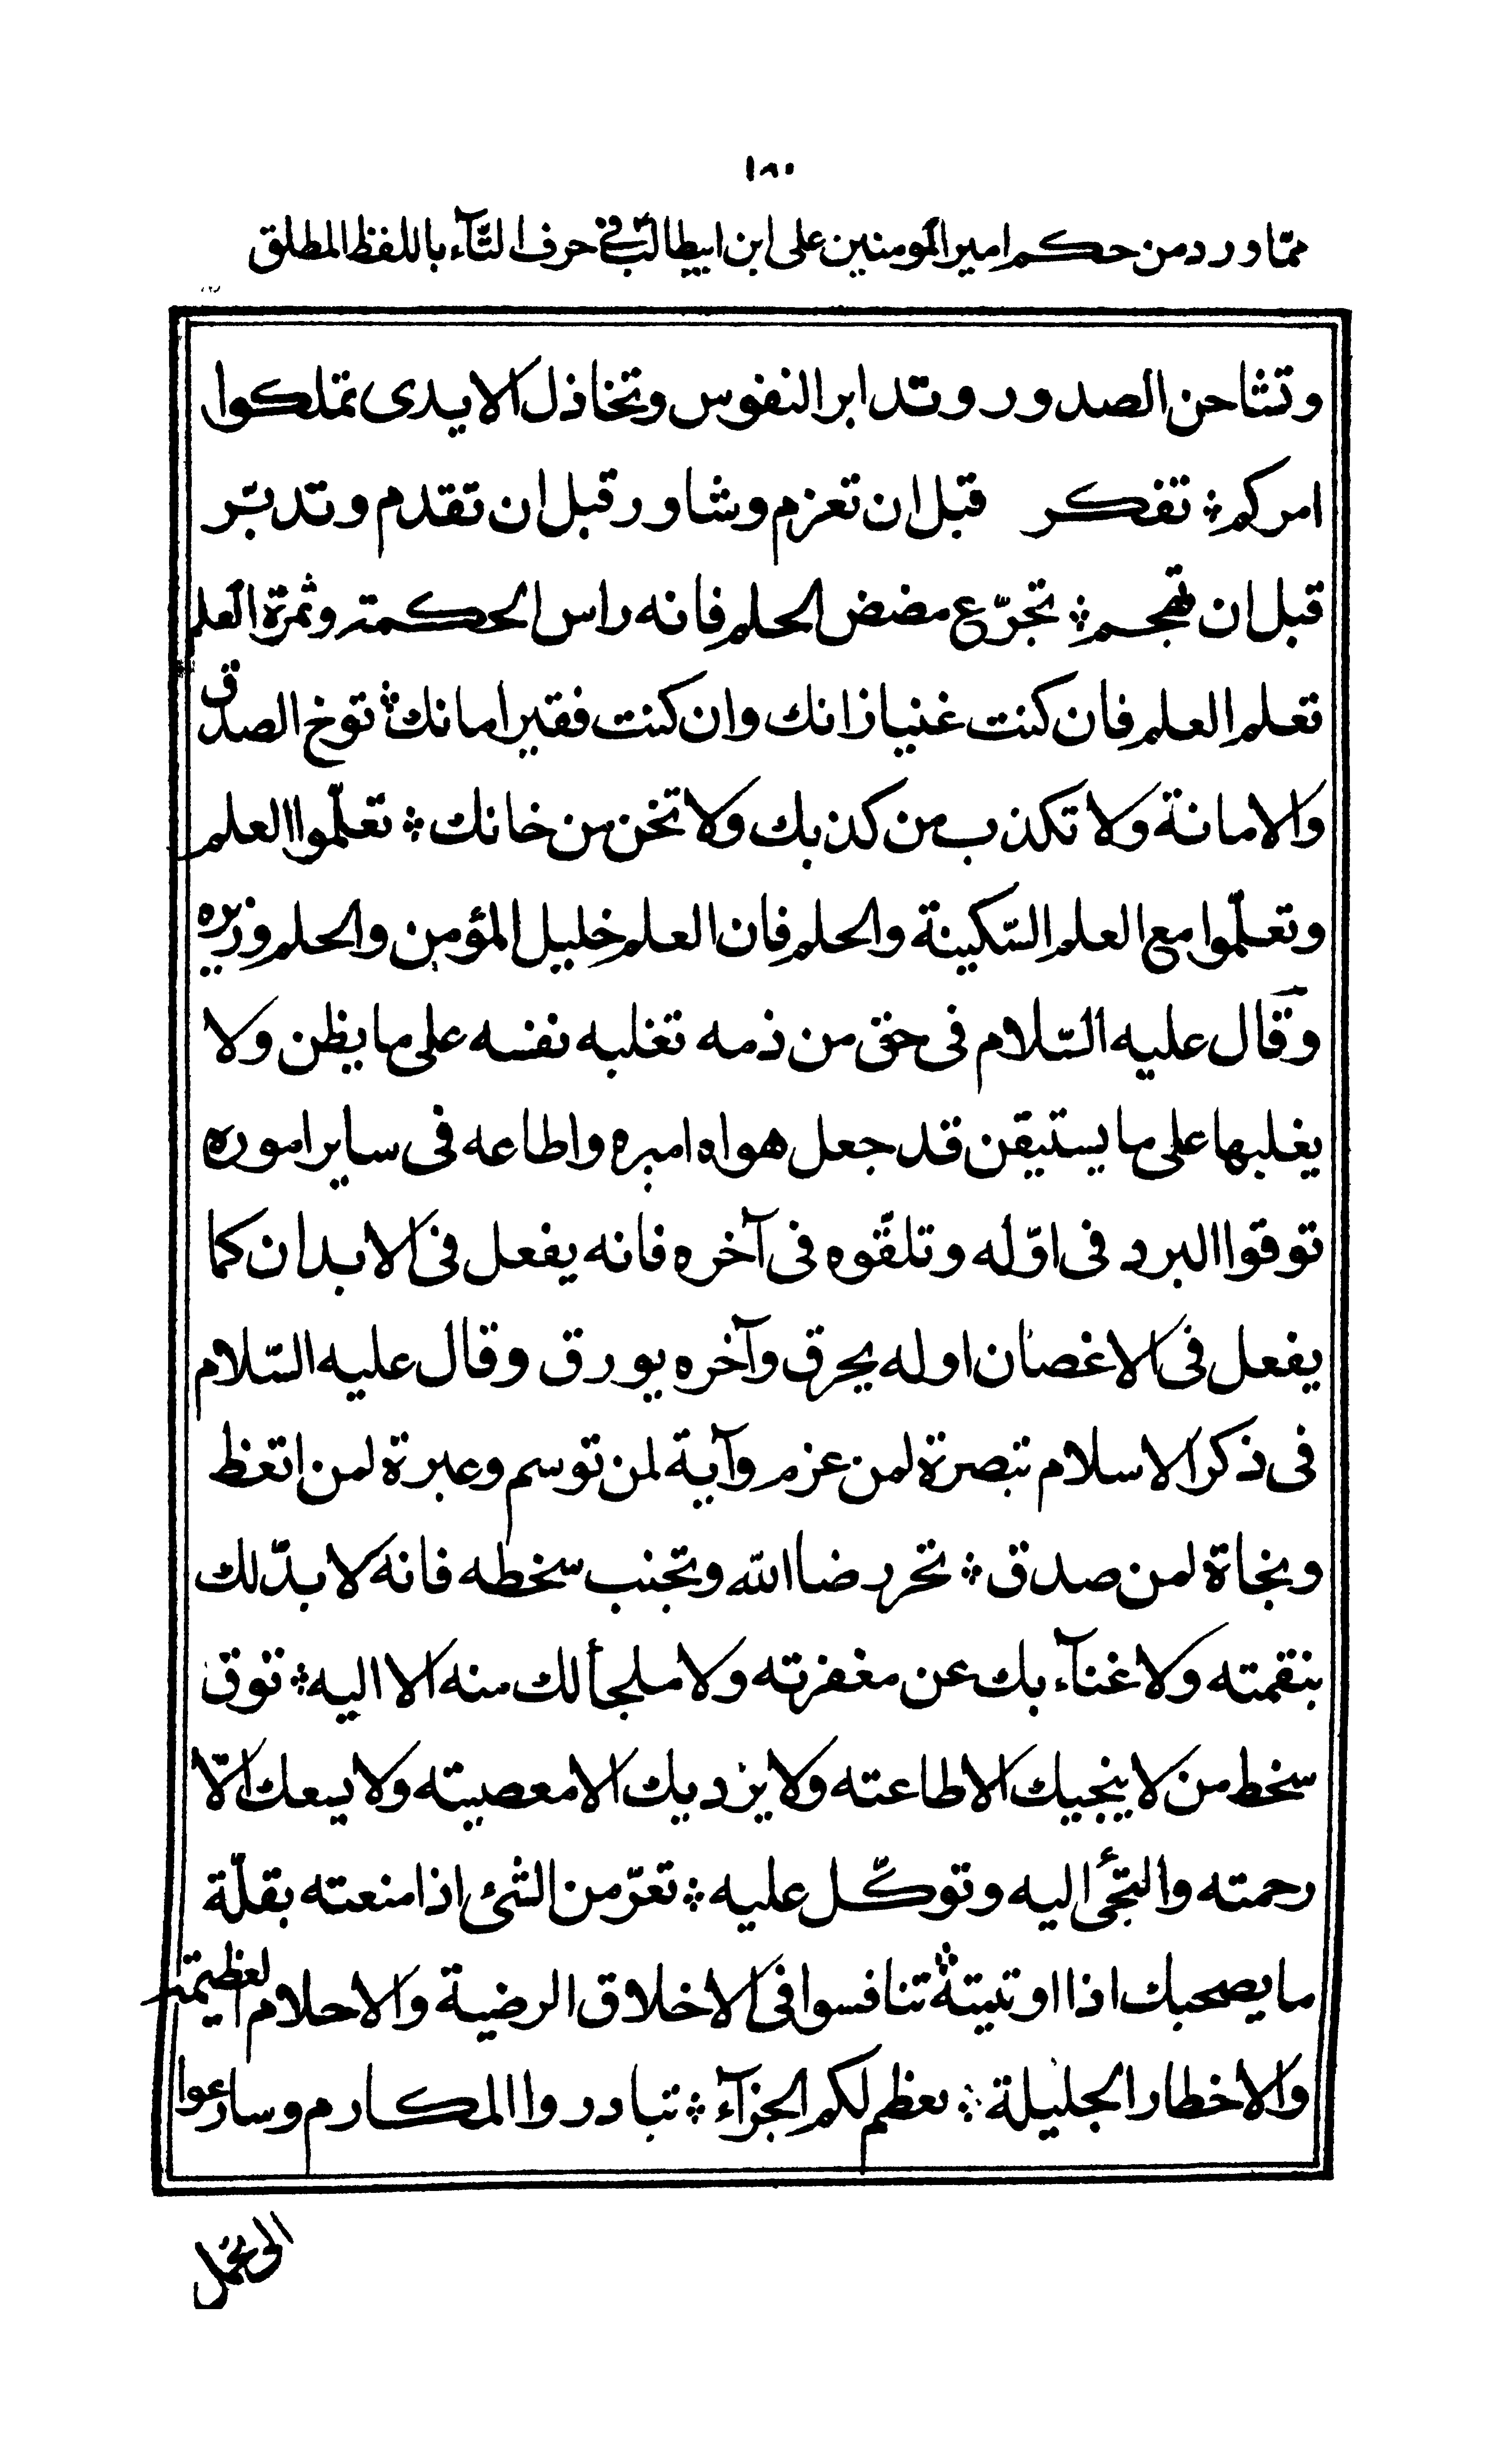 ١٨٠
ممّا ورد من حكم امير المومنين على ابن ابيطالب فى حرف التّآء باللفظ المطلق
وتشاحن الصدور وتدابر النفوس وتخاذل الايدى تملكوا
امركم ؞ تفكر قبل ان تعزم وشاور قبل ان تقدم وتدبّر
قبل ان تهجم ؞ تجرّع مضض الحلم فانه راس الحكمة وثمرة العلم
تعلم العلم فان كنت غنيا زانك وان كنت فقيرا مانك ؞ توخ الصدق
والامانة ولا تكذب من كذبك ولا تخن من خانك ؞ تعلّموا العلم
وتعلّموا مع العلم السّكينة والحلم فان العلم خليل المؤمن والحلم وزيره
وقال عليه السّلام فى حق من ذمه تغلبه نفسه على ما يظن ولا
يغلبها على ما يستيقن قد جعل هواه اميره واطاعه فى ساير اموره
توقوا البرد فى اوّله وتلقّوه فى آخره فانه يفعل فى الابدان كما
يفعل فى الاغصان اوله يحرق وآخره يورق وقال عليه السّلام
فى ذكر الاسلام تبصرة لمن عزم وآية لمن توسم وعبرة لمن اتعظ
ونجاة لمن صدق ؞ تحر رضا الله وتجنب سخطه فانه لا بدّ لك
بنقمته ولا غنآء بك عن مغفرته ولا ملجأ لك منه الا اليه ؞ توق
سخط من لا ينجيك الا طاعته ولا يزديك الا معصيته ولا يسعك الّا
رحمته والتجئ اليه وتوكّل عليه ؞ تعزّ من الشئ اذا منعته بقلّة
ما يصحبك اذا اوتيته ؞ تنافسوا فى الاخلاق الرضية والاحلام العظيمة
والاخطار الجليلة ؞ يعظم لكم الجزآء ؞ تبادروا المكارم وسارعوا
الى تحمل